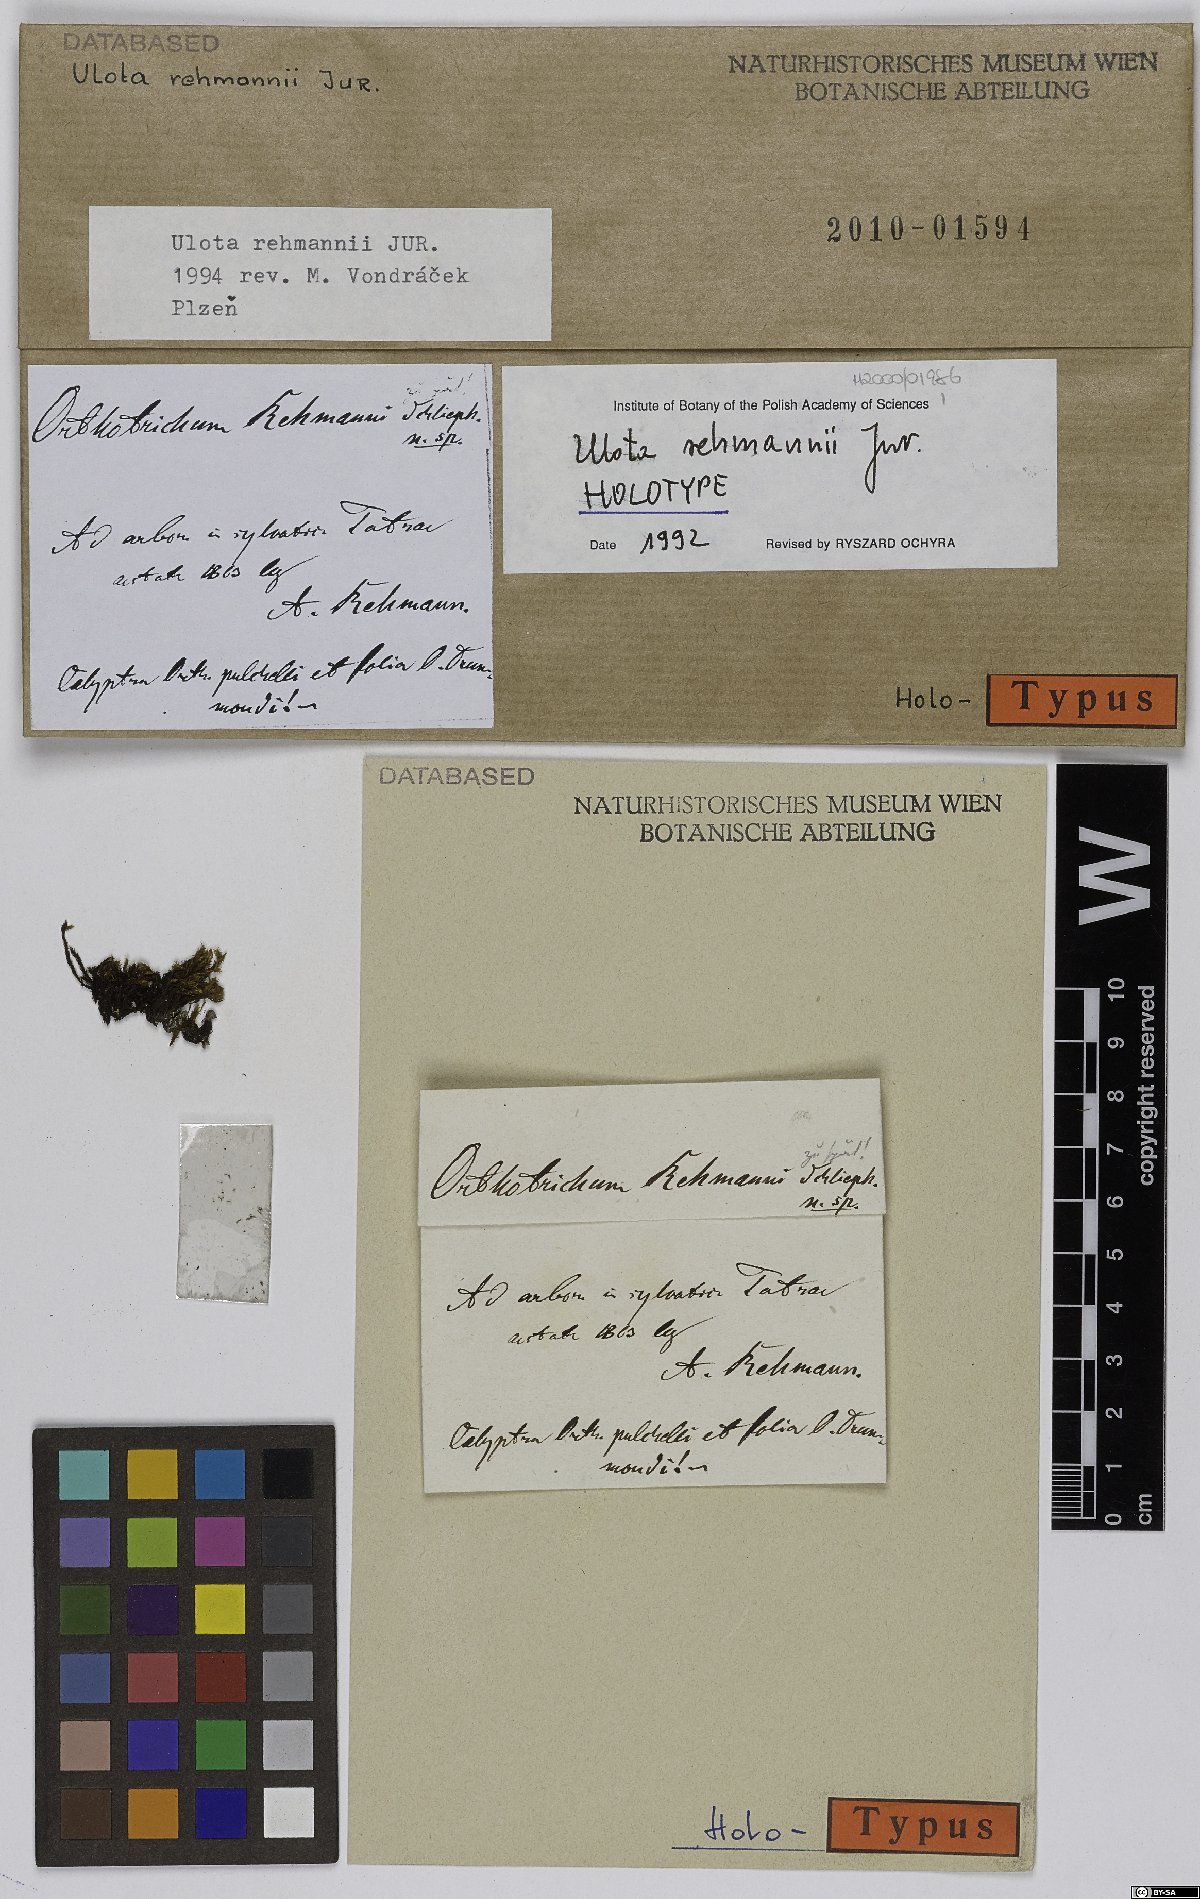 DATABASED
Ulota rehmannii Jur.
NATURHISTORISCHES MUSEUM WIEN
BOTANISCHE ABTEILUNG
2010-01594
Ulota rehmannii JUR.
1994 rev. M. Vondráček
Plzeň
Orthotrichum Rehmanni Schlieph.
n. sp.
Ad arbor. in sylvatic. Tatrae
aestate 1863 lg
A. Rehmann.
Calyptra Orth. pulchelli et folia O. Drum-
mondi!
H2000/01986
Institute of Botany of the Polish Academy of Sciences
Ulota rehmannii Jur.
HOLOTYPE
Date 1992 Revised by RYSZARD OCHYRA
Holo- Typus
DATABASED
NATURHISTORISCHES MUSEUM WIEN
BOTANISCHE ABTEILUNG
Orthotrichum Rehmanni Schlieph.
n. sp.
Ad arbor. in sylvatic. Tatrae
aestate 1863 lg
A. Rehmann.
Calyptra Orth. pulchelli et folia O. Drum-
mondi!
Holo- Typus
W
10
9
8
7
6
5
4
3
2
1
0
cm
copyright reserved
cc BY-SA